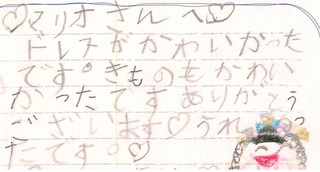 ♡マリオさんへ♡
ドレスがかわいかった
です。きものもかわい
かったですありがとう
ございます♡うれしかっ
たです。♡